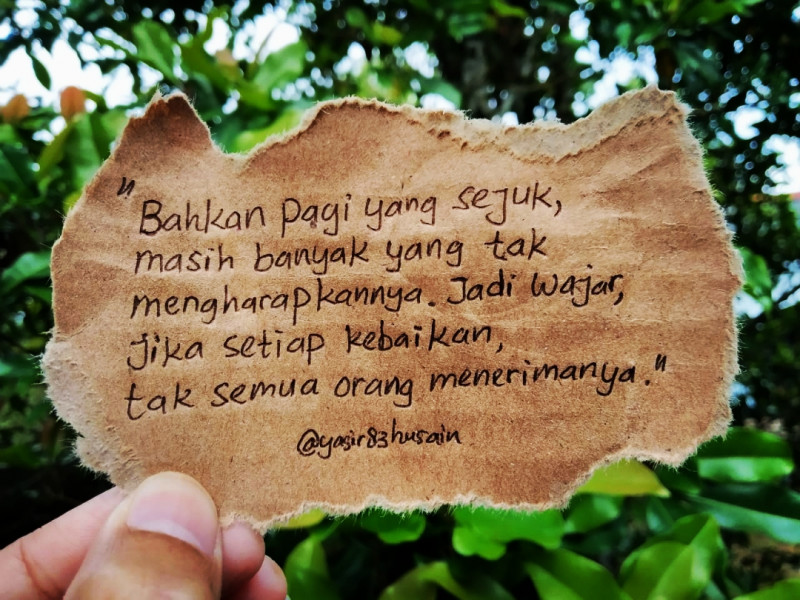 "Bahkan pagi yang sejuk,
masih banyak yang tak
mengharapkannya. Jadi wajar,
jika setiap kebaikan,
tak semua orang menerimanya."
@yasir83husain